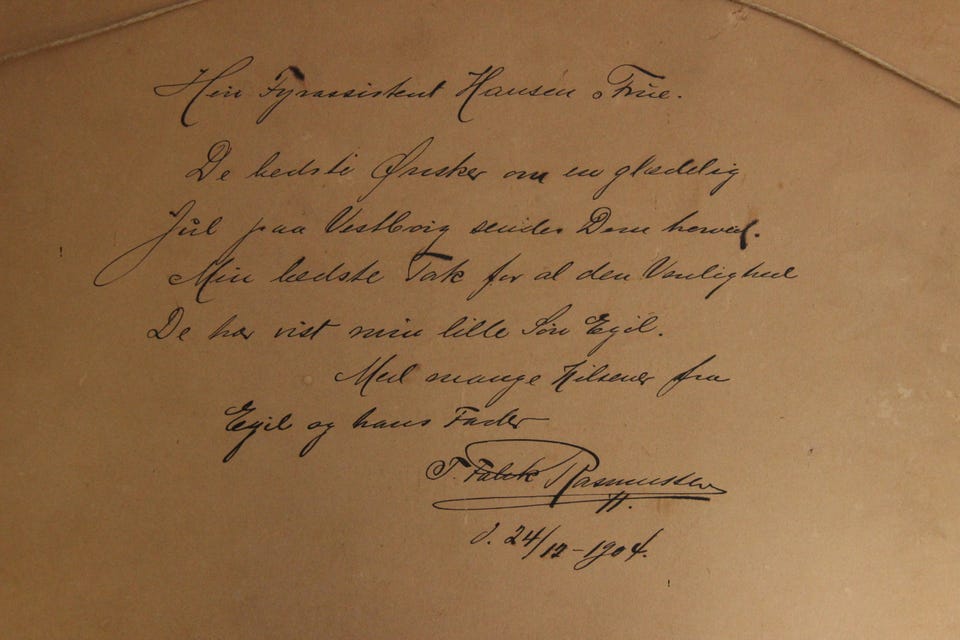 Hrr Fyrassistent Hansen & Frue.
De bedste Ønsker om en glædelig
Jul paa Vestborg sendes Dem herved.
Min bedste Tak for al den Venlighed
De har vist min lille Søn Egil.
Med mange Hilsener fra
Egil og hans Fader
T. Falck Rasmussen
d. 24/12-1904.